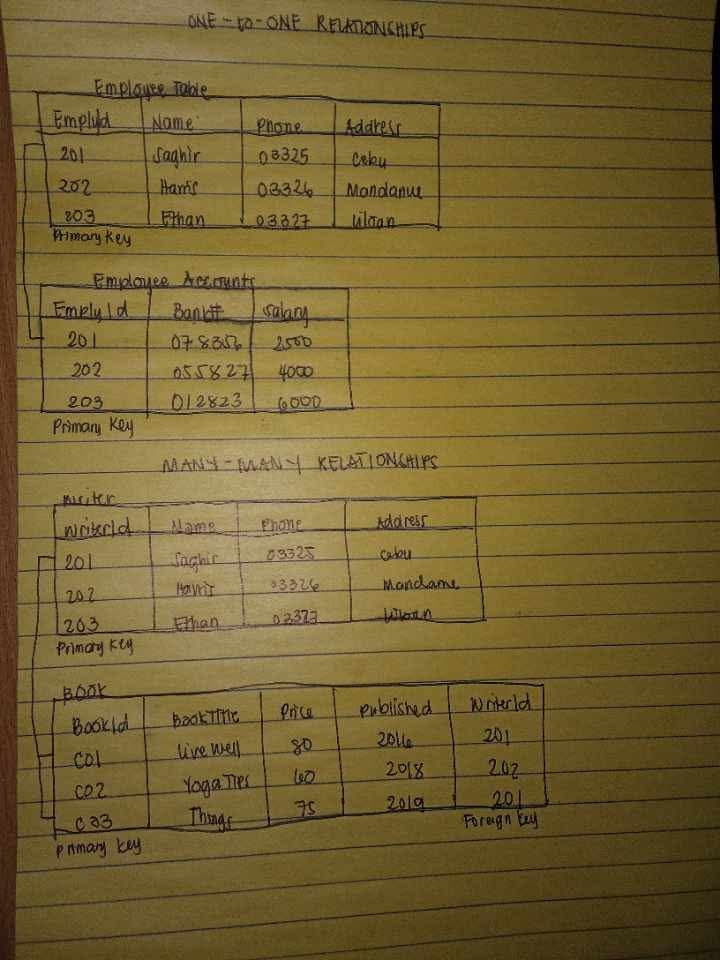 ONE-to-ONE RELATIONSHIPS
Employee Table
EmplyId Name Phone Address
201 Saghir 03325 Cebu
202 Harris 03326 Mandanue
203 Ethan 03327 Liloan
Primary Key
Employee Accounts
EmplyId Bank# Salary
201 078356 2500
202 055827 4000
203 012823 6000
Primary Key
MANY-MANY RELATIONSHIPS
Writer
WriterId Name Phone Address
201 Saghir 03325 Cebu
202 Harris 03326 Mandame
203 Ethan 03327 Liloan
Primary Key
BOOK
BookId BookTitle Price Published WriterId
C01 Live Well 80 2016 201
C02 Yoga Tips 60 2018 202
C03 Things 75 2019 201
Primary Key Foreign Key